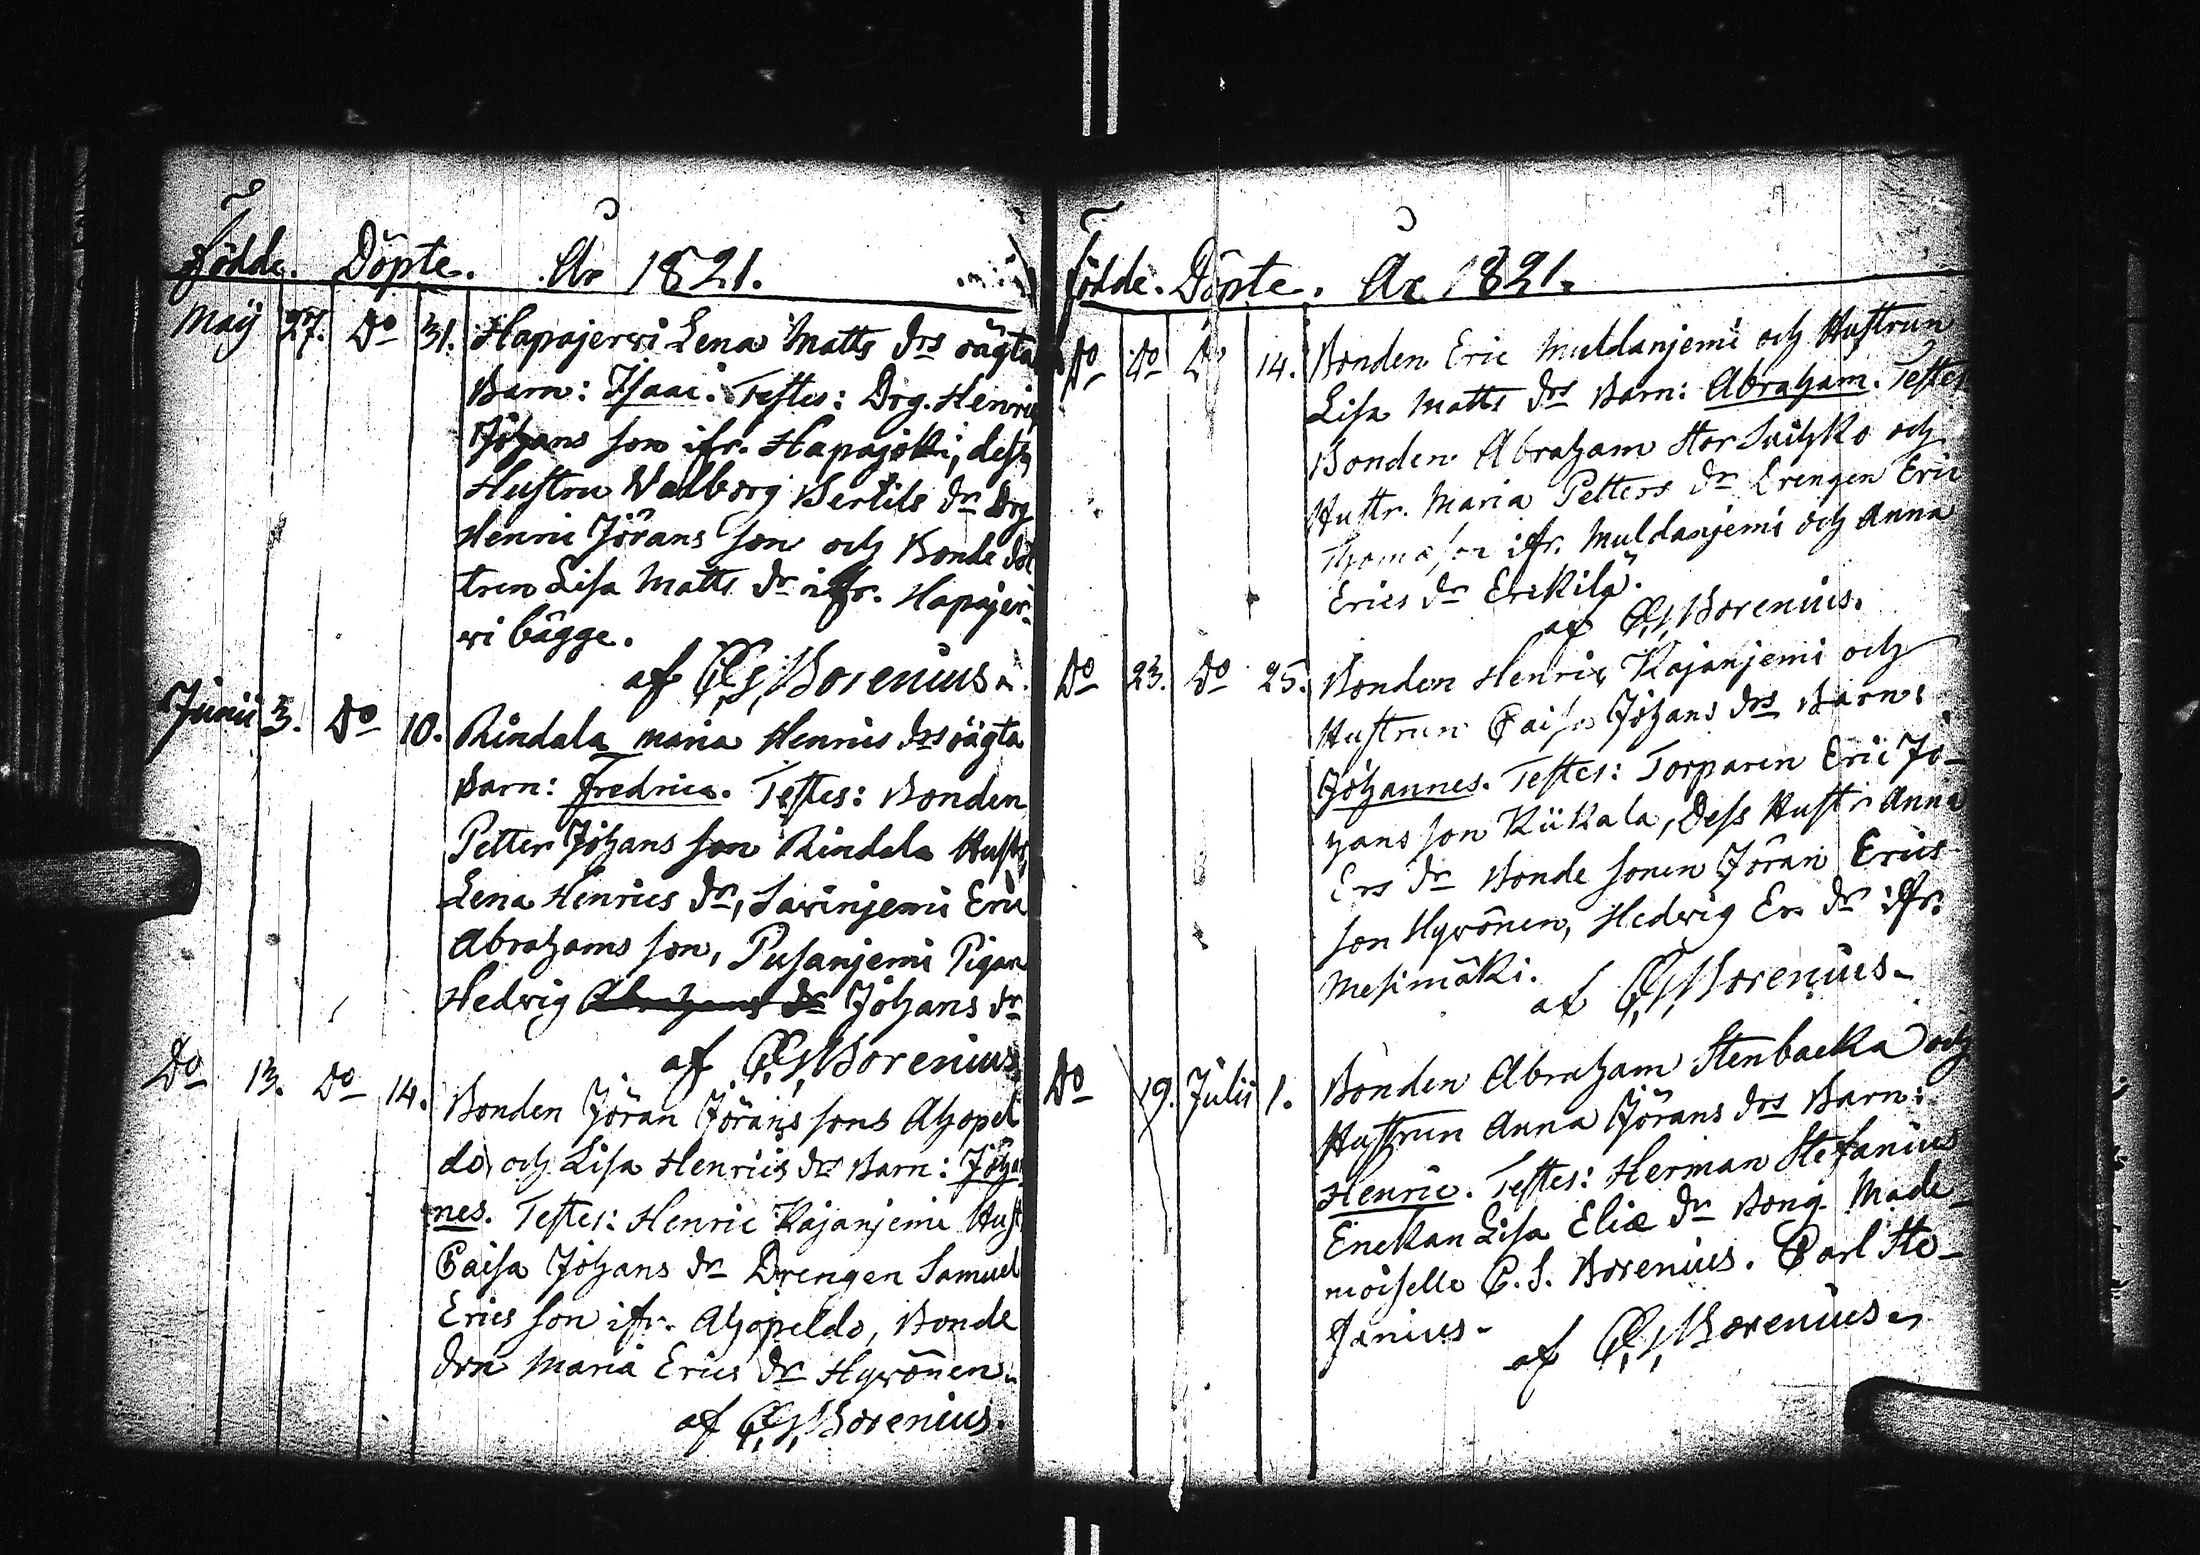 Födde. Döpte. År 1821.
Maÿ 27. Do 31. Hapajerwi Lena Matts drs oägta
Barn: Isaac. Testes: Drg. Henric
Johans son ifr. Hapajoki, dess
Hustru Walborg Bertils dr Drg
Henric Jörans son och Bonde dot
tren Lisa Matts dr ifr. Hapajer-
wi bägge.
af C.G. Borenius.
Junii 3. Do 10. Rindala Maria Henrics drs oägta
Barn: Fredrica. Testes: Bonden
Petter Johans son Rindala Hustr.
Lena Henrics dr, Sawinjemi Eric
Abrahams son, Pusanjemi Pigan
Hedvig Abrahams dr Johans dr
af C.G. Borenius
Do 13. Do 14. Bonden Jöran Jörans sons Ahopel
do och Lisa Henrics drs Barn: Johan
nes. Testes: Henric Kajanjemi Hust
Caisa Johans dr Drengen Samuel
Erics son ifr. Ahopeldo, Bonde
drn Maria Erics dr Hyvönen.
af C.G. Borenius.
Födde. Döpte. År 1821.
Do Do Do 14. Bonden Eric Muldanjemi och Hustrun
Lisa Matts drs Barn: Abraham. Testes
Bonden Abraham Stor Suihko och
Hustr. Maria Petters dr Drengen Eric
Thomæ son ifr. Muldanjemi och Anna
Erics dr Erckilä.
af C.G. Borenius.
Do 23. Do 25. Bonden Henric Kajanjemi och
Hustrun Caisa Johans drs Barn:
Johannes. Testes: Torparen Eric Jo-
hans son Kükala, Dess Hustr Anna
Ers dr Bonde sonen Jöran Erics
son Hyvönen, Hedvig Ers dr ifr.
Mesimäki.
af C.G. Borenius.
Do 19. Julii 1. Bonden Abraham Stenbacka och
Hustrun Anna Jörans drs Barn:
Henric. Testes: Herman Stefanius
Enckan Lisa Eliæ dr Bong. Made-
moiselle C.S. Borenius. Carl Ste-
fanius.
af C.G. Borenius.